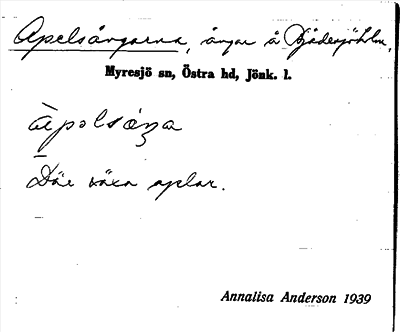 Apelsängarna, ängar å Bjädesjöholm,
Myresjö sn, Östra hd, Jönk. l.
Där växa aplar.
Annalisa Anderson 1939